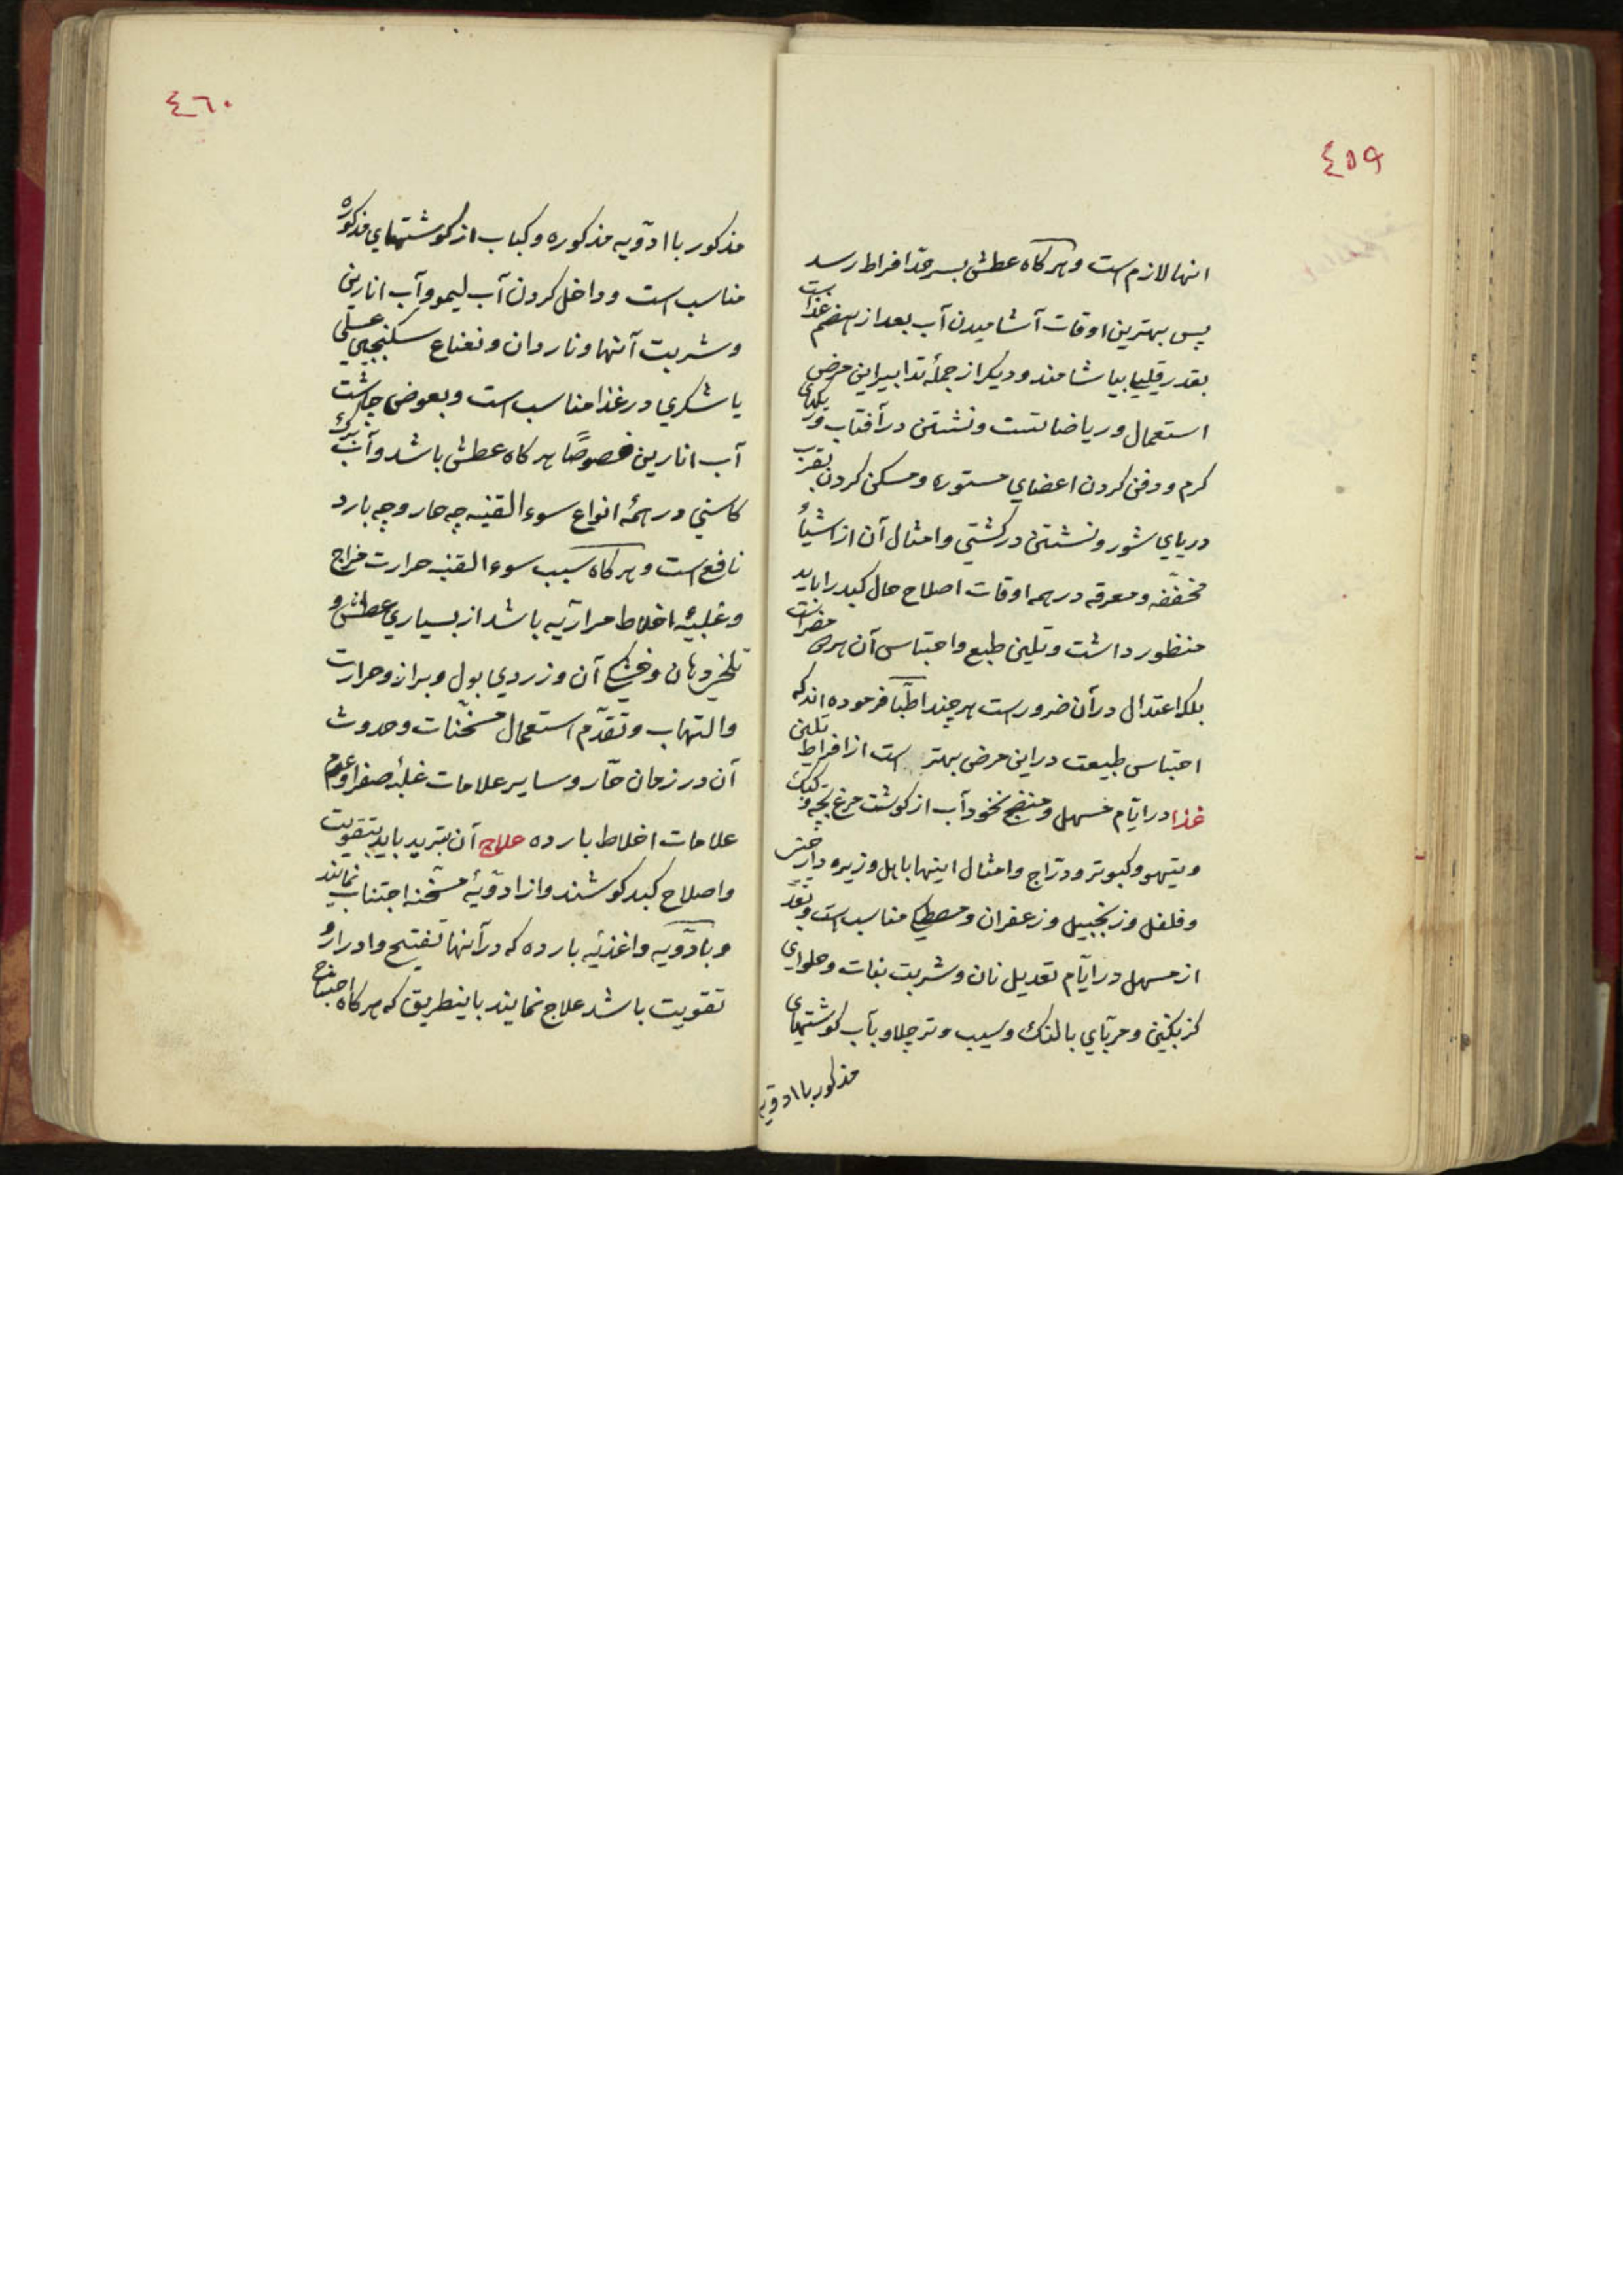 ٤٥٩
انها لازم است و هر کاه عطش بسر حدّ افراط رسد
پس بهترین اوقات آشامیدن آب بعد از هضم غذاست
بقدر قلیل بیاشامند و دیکر از جملۀ تدابیر این مرض
استعمال و ریاضاتست و نشستن در آفتاب و ریکهای
کرم و دفن کردن اعضای مستوره و مسکن کردن بقرب
دریای شور و نشستن در کشتی و امثال آن از اشیاء
مخففه و معرقه در همه اوقات اصلاح حال کبد را باید
منظور داشت و تلیین طبع و احتباس آن هر دو مضراست
بلکه اعتدال در آن ضرور است هر چند اطبّا فرموده اند که
احتباس طبیعت در این مرض بهتر است از افراط تلیین
غذا در ایّام مسهل و منضج نخود آب از کوشت مرغ بچه و کبک
و تیهو و کبوتر و درّاج و امثال اینها با هل و زیره و دارچینی
و فلفل و زنجبیل و زعفران و مصطکی مناسب است و بعد
از مسهل در ایّام تعدیل نان و شربت نبات و حلوای
کزنکبین و مربّای بالنک و سیب و تر چلاو بآب کوشتهای
مذکور با ادویه
٤٦٠
مذکور با ادّویه مذکوره و کباب از کوشتهای مذکوره
مناسب است و داخل کردن آب لیمو و آب انارین
و شربت آنها و ناردان و نعناع سکنجبین عسلی
یا شکری در غذا مناسب است و بعوض چاشت
آب انارین خصوصًا هر کاه عطش باشد و آب برک
کاسنی در همۀ انواع سوء القنیه چه حار و چه بارد
نافع است و هر کاه سبب سوء القنیه حرارت مزاج
و غلبۀ اخلاط مراریه باشد از بسیاری عطش و
تلخی دهان و خشکی آن و زردی بول و براز و حرارت
و التهاب و تقدّم استعمال مسخّنات و حدوث
آن در زمان حّار و سایر علامات غلبۀ صفرا و عدم
علامات اخلاط بارده علاج آن بتبرید باید بتقویت
و اصلاح کبد کوشند و از ادّویۀ مسخّنه اجتناب نمایند
و بادّویه و اغذیۀ بارده که در آنها تفتیح و ادرار و
تقویت باشد علاج نمایند باینطریق که هر کاه احتیاج